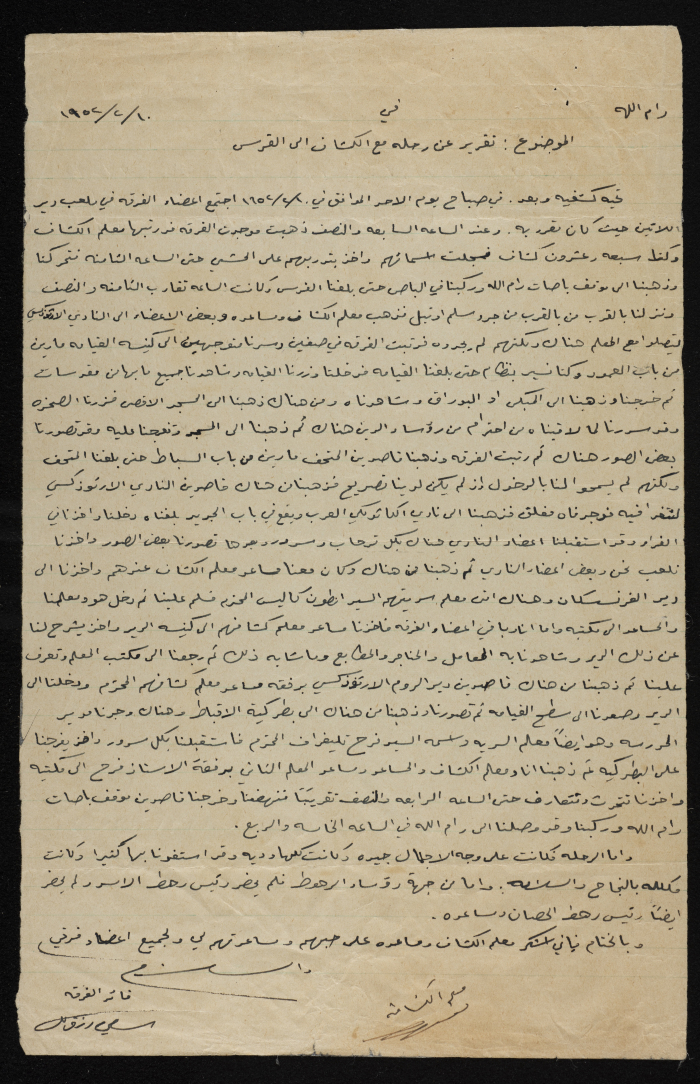 رام الله في ١٩٥٢/٢/١٠
الموضوع : تقرير عن رحله مع الكشاف الى القدس
تحيه كشفيه وبعد . في صباح يوم الاحد الموافق في ١٩٥٢/٢/١٠ اجتمع اعضاء الفرقه في ملعب دير
اللاتين حيث كان تقرر به . وعند الساعه السابعه والنصف ذهبت موجدت الفرقه قد رتبها معلم الكشاف
وكلها سبعه وعشرون كشاف فسجلت اسمائهم واخذ بتدريبهم على المشي حتى الساعه الثامنه فتحركنا
وذهبنا الى موقف باصات رام الله وركبنا في الباص حتى بلغنا القدس وكانت الساعه تقارب الثامنه والنصف
ونزلنا بالقرب من بالقرب من اوتيل فذهب معلم الكشاف ومساعده وبعض الاعضاء الى النادي الارثوذكسي
ليتصلوا مع المعلم هناك ولكنهم لم يجدوه فرتبت الفرقه في صفين وسرنا متوجهين الى كنيسه القيامه مارين
من باب العمود وكنا نسير بنظام حتى بلغنا القيامه فدخلنا وزرنا القيامه وشاهدنا جميع ما بها من مقدسات
ثم خرجنا وذهبنا الى المبكى او البوراق وشاهدناه ومن هناك ذهبنا الى المسجد الاقصى فزرنا الصخره
وقد سررنا لما لاقيناه من احترام من رؤساء الدين هناك ثم ذهبنا الى المسجد وتفرجنا عليه وقد تصورنا
بعض الصور هناك ثم رتبت الفرقه وذهبنا قاصدين المتحف مارين من باب السباط حتى بلغنا المتحف
ولكنهم لم يسمحو النا بالدخول إذ لم يكن لدينا تصريح فذهبنا من هناك قاصدين النادي الارثوذكسي
لنتغدا فيه فوجدناه مغلق فذهبنا الى نادي الكاثوليكي العرب ويقع في باب الجديد بلغناه دخلنا واخذنا في
الغداء وقد استقبلنا اعضاء النادي هناك بكل ترحاب وسرور وبعدها تصورنا بعض الصور واخذنا
نلعب نحن وبعض اعضاء النادي ثم ذهبنا من هناك وكان معنا مساعد معلم الكشاف عندهم واخذنا الى
دير الفرنسسكان وهناك اتى معلم سريتهم السيد انطون كاليس المحترم فسلم علينا ثم دخل هو ومعلمنا
والمساعد الى مكتبه واما انا وباقي اعضاء الفرقه فاخذنا مساعد معلم كشافهم الى كنيسه الدير واخذ يشرح لنا
عن ذلك الدير وشاهدنا به المعامل والمناجر والمطابع وما شابه ذلك ثم رجعنا الى مكتب المعلم وتعرف
علينا ثم ذهبنا من هناك قاصدين دير الروم الارثوذكسي برفقه مساعد معلم كشافهم المحترم ودخلنا الى
الدير وصعدنا الى سطح القيامه ثم تصورنا وذهبنا من هناك الى بطركية الاقباط وهناك وجدنا مدير
المدرسه وهو ايضاً معلم السريه واسمه السيد فرح المحترم فاستقبلنا بكل سرور واخذ يفرجنا
على البطركيه ثم ذهبنا انا ومعلم الكشاف والمساعد ومساعد المعلم الثاني برفقة الاستاذ فرح الى مكتبه
واخذنا نتحدث ونتعارف حتى الساعه الرابعه والنصف تقريبًا فنهضنا وخرجنا قاصدين موقف باصات
رام الله وركبنا وقد وصلنا الى رام الله في الساعه الخامسه والربع .
واما الرحله فكانت على وجه الاجمال جيده وكانت كلها وديه وقد استفدنا بها كثيرا وكانت
مكلله بالنجاح والسلامه . واما من جهة رؤساء الرهوط فلم يحضر رئيس رهط الاسود ولم يحضر
ايضاً رئيس رهط الحصان ومساعده .
وبالختام فإنني اشكر معلم الكشاف ومساعده على حبهم ومساعدتهم لي ولجميع اعضاء فرقتي
والسلام
معلم الكشافة قائد الفرقه